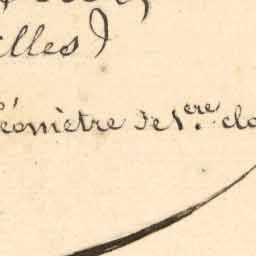 illes)
éomètre de 1.ere cla